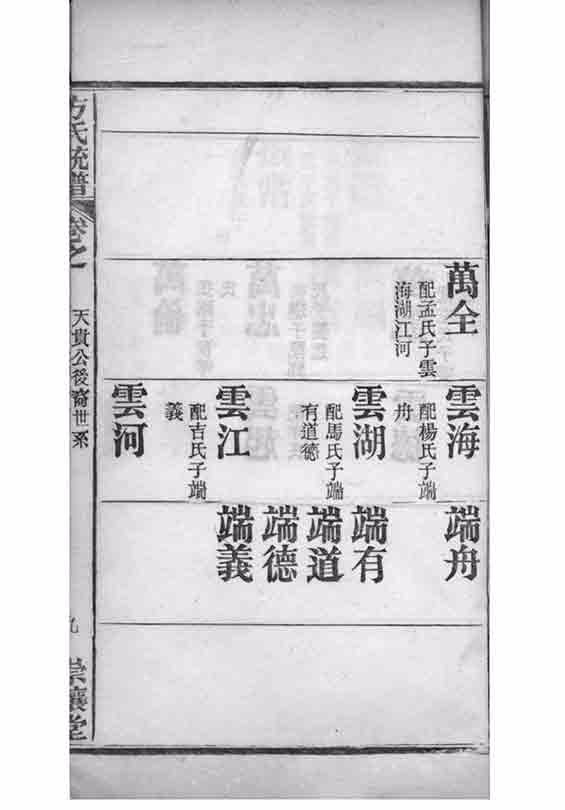 萬全
配孟氏子雲
海湖江河
雲海
配楊氏子端
舟
雲湖
配馬氏子端
有道德
雲江
配吉氏子端
義
雲河
端舟
端有
端道
端德
端義
方氏統譜
卷之
天貴公後裔世系
九
崇讓堂